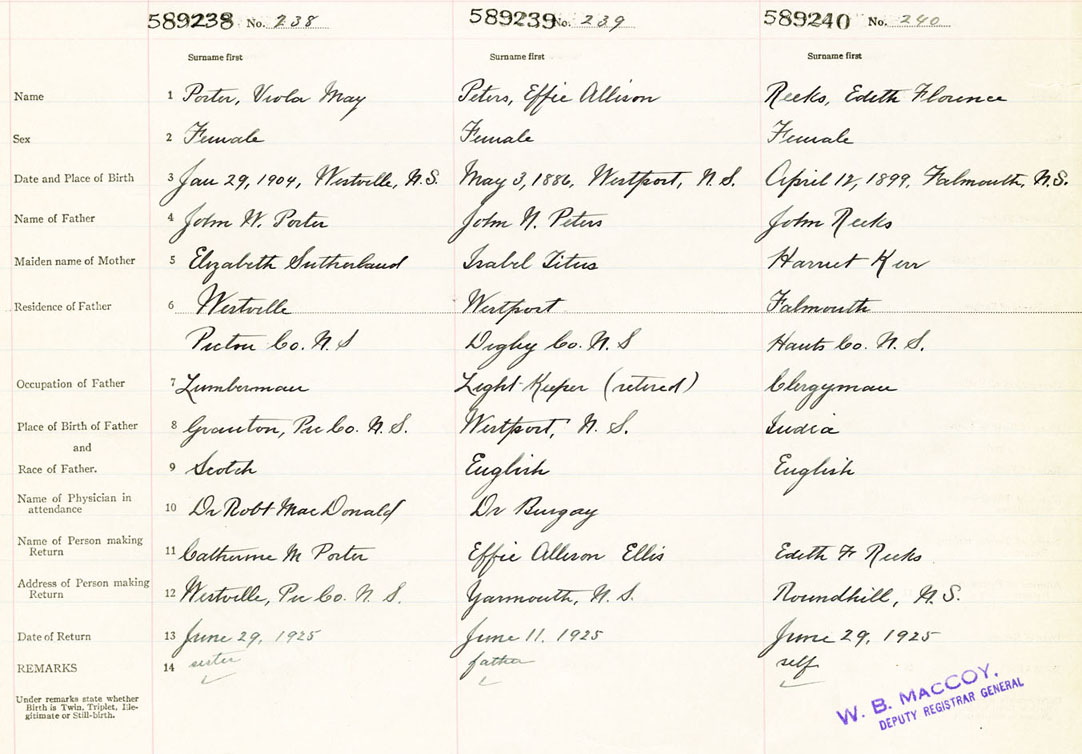 589238 No. 238 589239 No. 239 589240 No. 240
Surname first Surname first Surname first
Name 1 Porter, Viola May Peters, Effie Allison Reeks, Edith Florence
Sex 2 Female Female Female
Date and Place of Birth 3 Jan 29, 1904, Westville, N.S. May 3, 1886, Westport, N.S. April 12, 1899, Falmouth, N.S.
Name of Father 4 John W. Porter John N. Peters John Reeks
Maiden name of Mother 5 Elizabeth Sutherland Isabel Titus Harriet Kerr
Residence of Father 6 Westville Westport Falmouth
Pictou Co. N.S Digby Co. N.S Hants Co. N.S.
Occupation of Father 7 Lumberman Light Keeper (retired) Clergyman
Place of Birth of Father 8 Granton, Pic Co. N.S. Westport, N.S. India
and
Race of Father. 9 Scotch English English
Name of Physician in
attendance 10 Dr Robt MacDonald Dr
Name of Person making
Return 11 Catherine M Porter Effie Allison Ellis Edith F Reeks
Address of Person making
Return 12 Westville, Pic Co. N.S. Yarmouth, N.S. Roundhill, N.S.
Date of Return 13 June 29, 1925 June 11, 1925 June 29, 1925
REMARKS 14 sister father self
Under remarks state whether
Birth is Twin, Triplet, Ille-
gitimate or Still-birth.
W. B. MACCOY.
DEPUTY REGISTRAR GENERAL